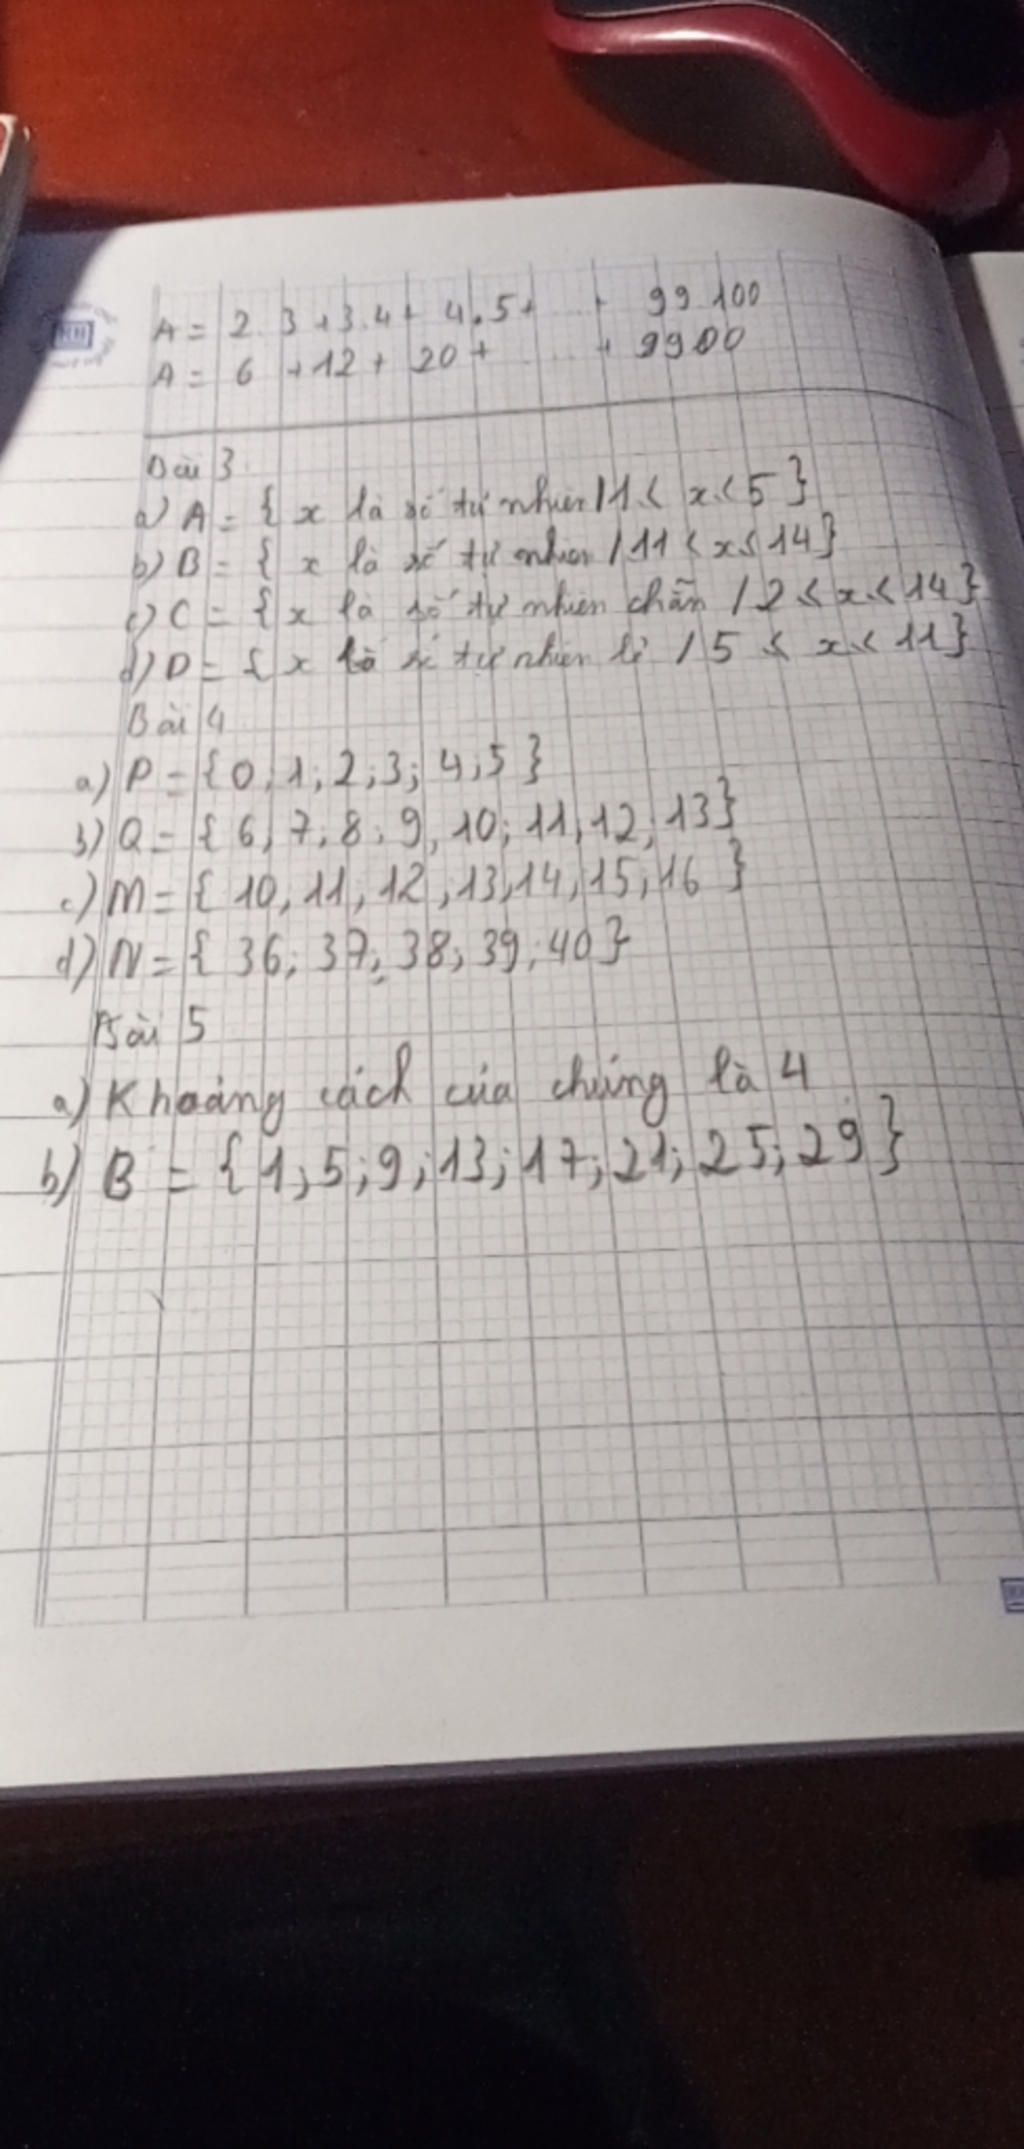 A = 2.3 + 3.4 + 4.5 + ... + 99.100
A = 6 + 12 + 20 + ... + 9900
Bài 3
a) A = { x là số tự nhiên / 1 < x < 5 }
b) B = { x là số tự nhiên / 11 < x ≤ 14 }
c) C = { x là số tự nhiên chẵn / 2 ≤ x < 14 }
d) D = { x là số tự nhiên lẻ / 5 ≤ x < 11 }
Bài 4
a) P = { 0; 1; 2; 3; 4; 5 }
b) Q = { 6; 7; 8; 9; 10; 11; 12; 13 }
c) M = { 10; 11; 12; 13; 14; 15; 16 }
d) N = { 36; 37; 38; 39; 40 }
Bài 5
a) Khoảng cách của chúng là 4
b) B = { 1; 5; 9; 13; 17; 21; 25; 29 }